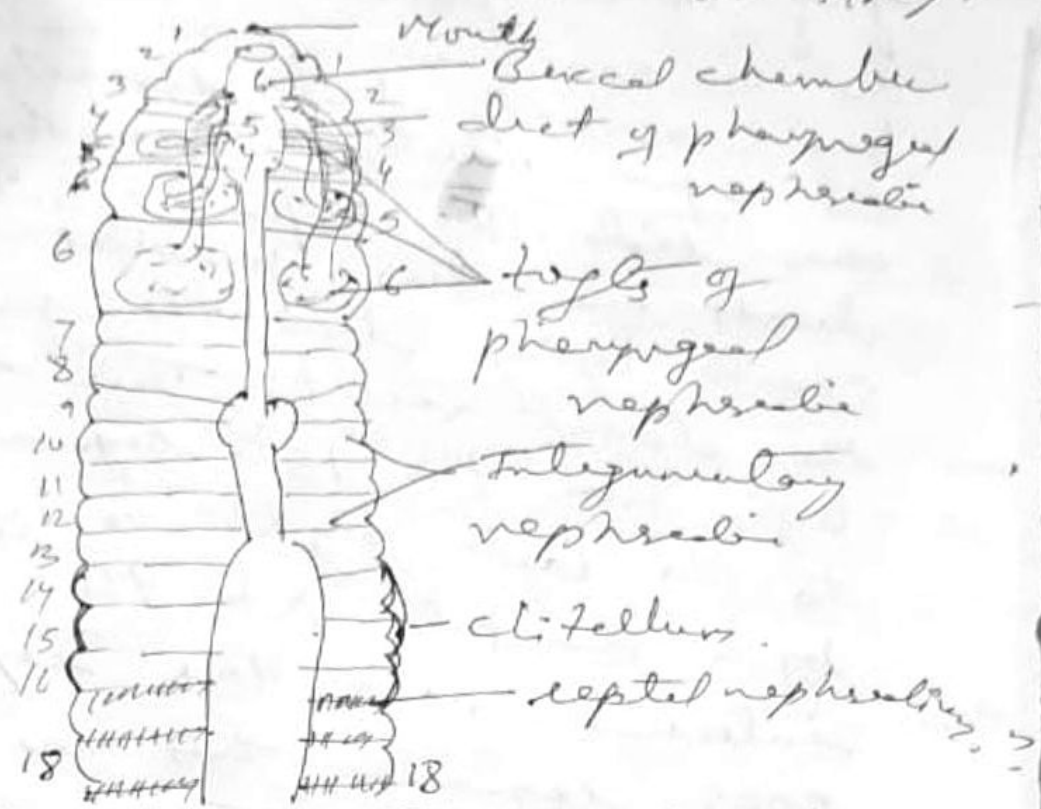 Mouth
Buccal chamber
duct of pharyngeal
nephridia
tufts of
pharyngeal
nephridia
Integumentary
nephridia
clitellum.
septal nephridium
1
2
3
4
5
6
7
8
9
10
11
12
13
14
15
16
18
1
2
3
4
5
6
18